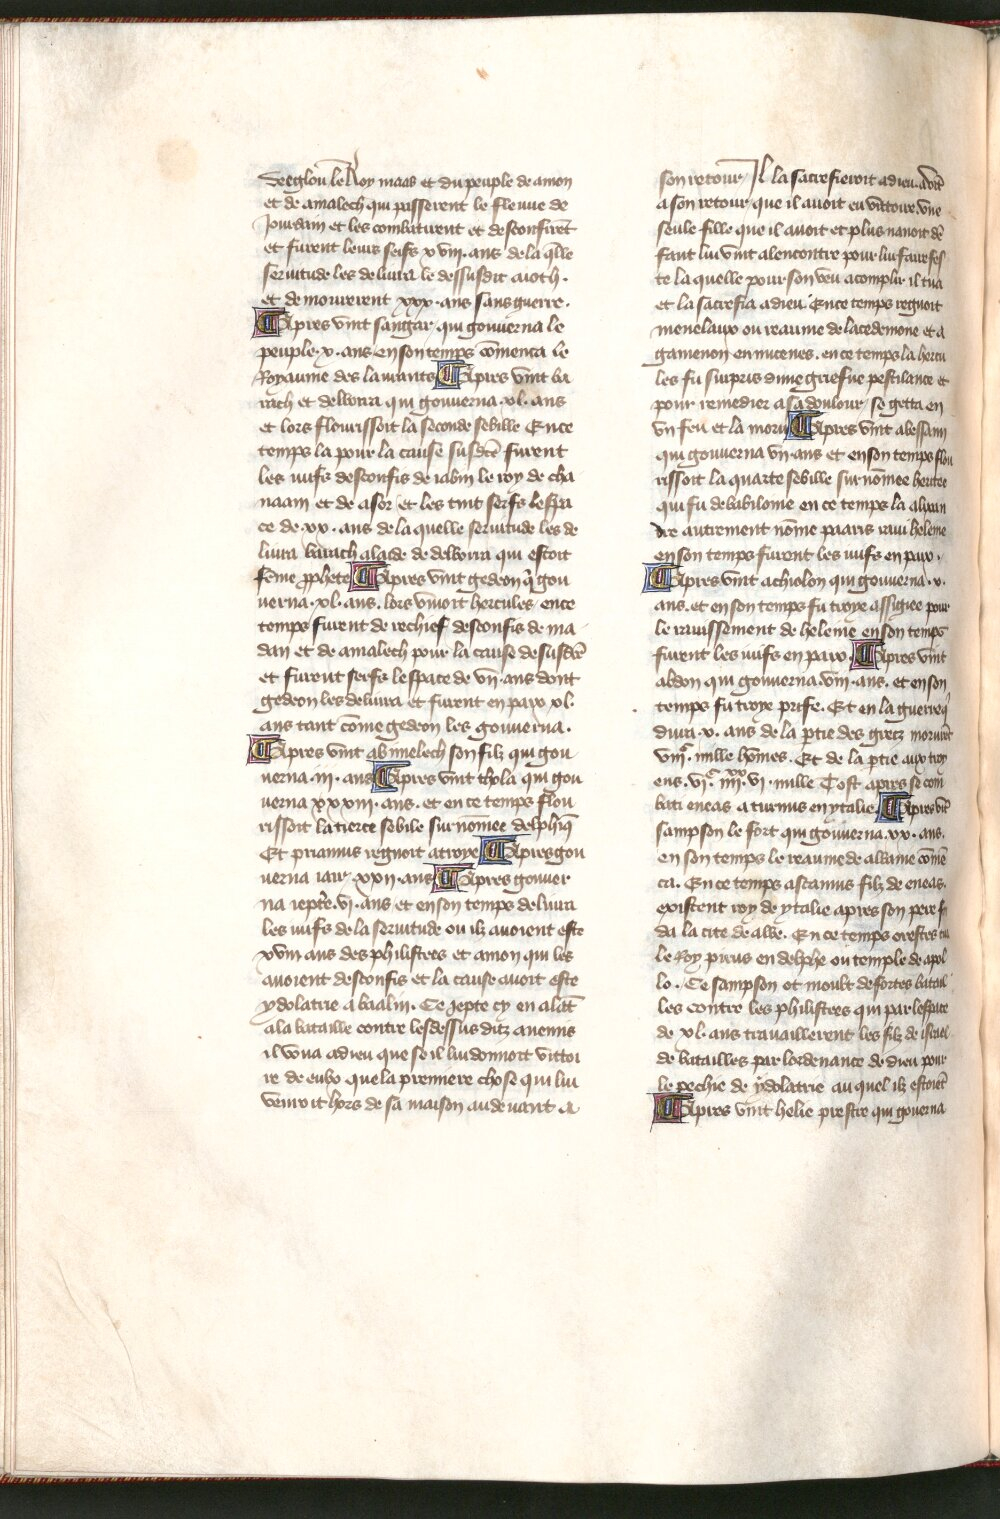 de eglon le Roy maas et du peuple de amon
et de amalech qui passerent le fleuue de
Jourdain et les combatirent et desconfirēt
et furent leurs serfs xviii. ans de la q̄lle
seruitude les deliura le dessusdit aioth.
et demourerent xxx. ans sans guerre.
Apres vint sangar. qui gouuerna le
peuple. x. ans en son temps cōmenca le
Royaume des laurants Apres vint ba
rach et delbora qui gouuerna. xl. ans
et lors flourissoit la seconde sebille En ce
temps la pour la cause susdcē furent
les iuifs desconfis de iabin le roy de cha
naam et de asor et les tint serfs lespa
ce de. xx. ans de la quelle seruitude les de
liura barach a laide de delbora qui estoit
fēme p̄phete Apres vint gedeon q̄ gou
uerna. xl. ans. lors viuoit hercules. en ce
temps furent de rechief desconfis de ma
dan et de amalech pour la cause desusdcē
et furent serfs lespace de vii. ans dont
gedeon les deliura et furent en paix xl.
ans tant cōme gedeon les gouuerna.
Apres vint abimelech son filz qui gou
uerna. iii. ans Apres vint thola qui gou
uerna xxxiii. ans. et en ce temps flou
rissoit la tierce sebile surnōmee delphiq̄
Et priamus regnoit a troye Apres gou
uerna iair xxii. ans Apres gouuer
na iepte. vi. ans et en son temps deliura
les iuifs de la seruitude ou ilz auoient este
xviii ans des philistrees et amon qui les
auoient desconfis et la cause auoit este
ydolatrie a baalin. Ce Jepte cy en alāt
a la bataille contre lesdessus ditz anemis
il voua a dieu que se il lui donnoit victoi
re de eulx que la premiere chose qui lui
venroit hors de sa maison au deuant a
son retour Il la sacrefieroit a dieu.
a son retour que il auoit eu victoire. vne
seule fille que il auoit et plus nauoit dē
fant lui vint alencontre pour lui faire fes
te la quelle pour son veu acomplir il tua
et la sacrefia a dieu. En ce temps regnoit
menelaux ou reaume de lacedemone et a
gamenon en micenes. en ce temps la hercu
les fu surpris dune griefue pestilance et
pour remedier a sa doulour se getta en
vn feu et la moru Apres vint abessam
qui gouuerna vii ans et en son temps flou
rissoit la quarte sebille surnōmee heritee
qui fu de babiloine en ce temps la alixan
dre autrement nōme paaris raui heleine
en son temps furent les iuifs en paix.
Apres vint achiolon qui gouuerna. x.
ans. et en son temps fu troye assigiee pour
le rauissement de heleine en son temps
furent les iuifs en paix. Apres vint
abdon qui gouuerna. viii. ans. et en son
temps fu troye prise. Et en la guerre q̄
dura. x. ans de la p̄tie des grecz morurēt
viiic. mille hōmes. Et de la p̄tie aux troy
ens. vic. iiiixx. vi. mille Tost apres se com
bati eneas a turnus en ytalie. Apres vīt
sampson le fort qui gouuerna. xx. ans.
en son temps le reaume de albanie cōmē
ca. En ce temps ascanius filz de eneas.
existent roy de ytalie apres son pere fu
da la cite de albe. En ce temps orestes tua
le Roy pirus en delphe ou temple de apol
lo. Ce sampson ot moult de fortes batail
les contre les philistrees qui par lespace
de xl. ans trauaillerent les filz de israel
de batailles par lordenance de dieu pour
le pechie de ydolatrie au quel ilz estoiēt
Apres vint helie prestre qui gouuerna